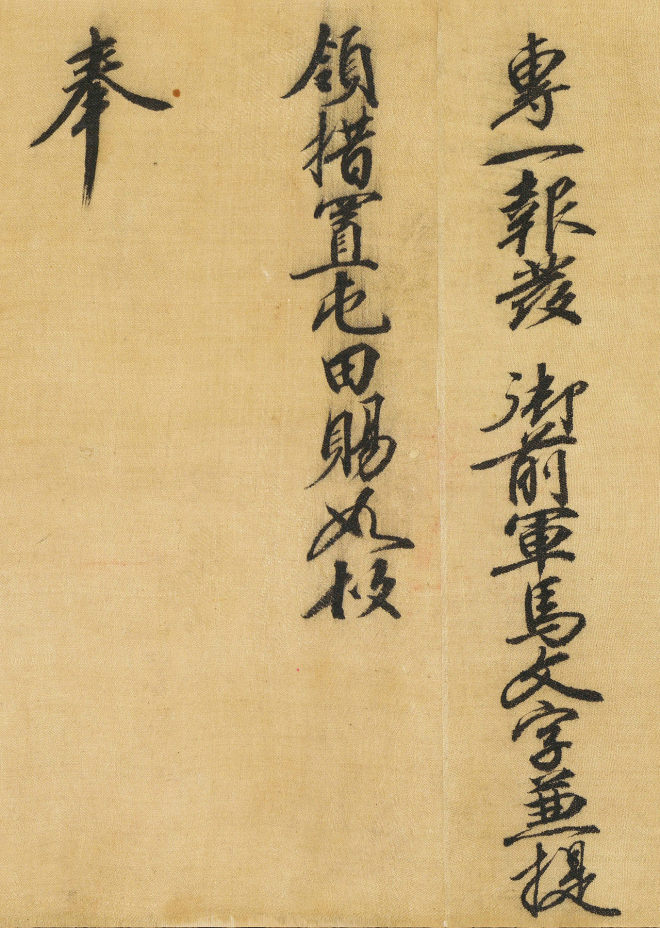 專一報發 御前軍馬文字兼提
領措置屯田賜如故
奉